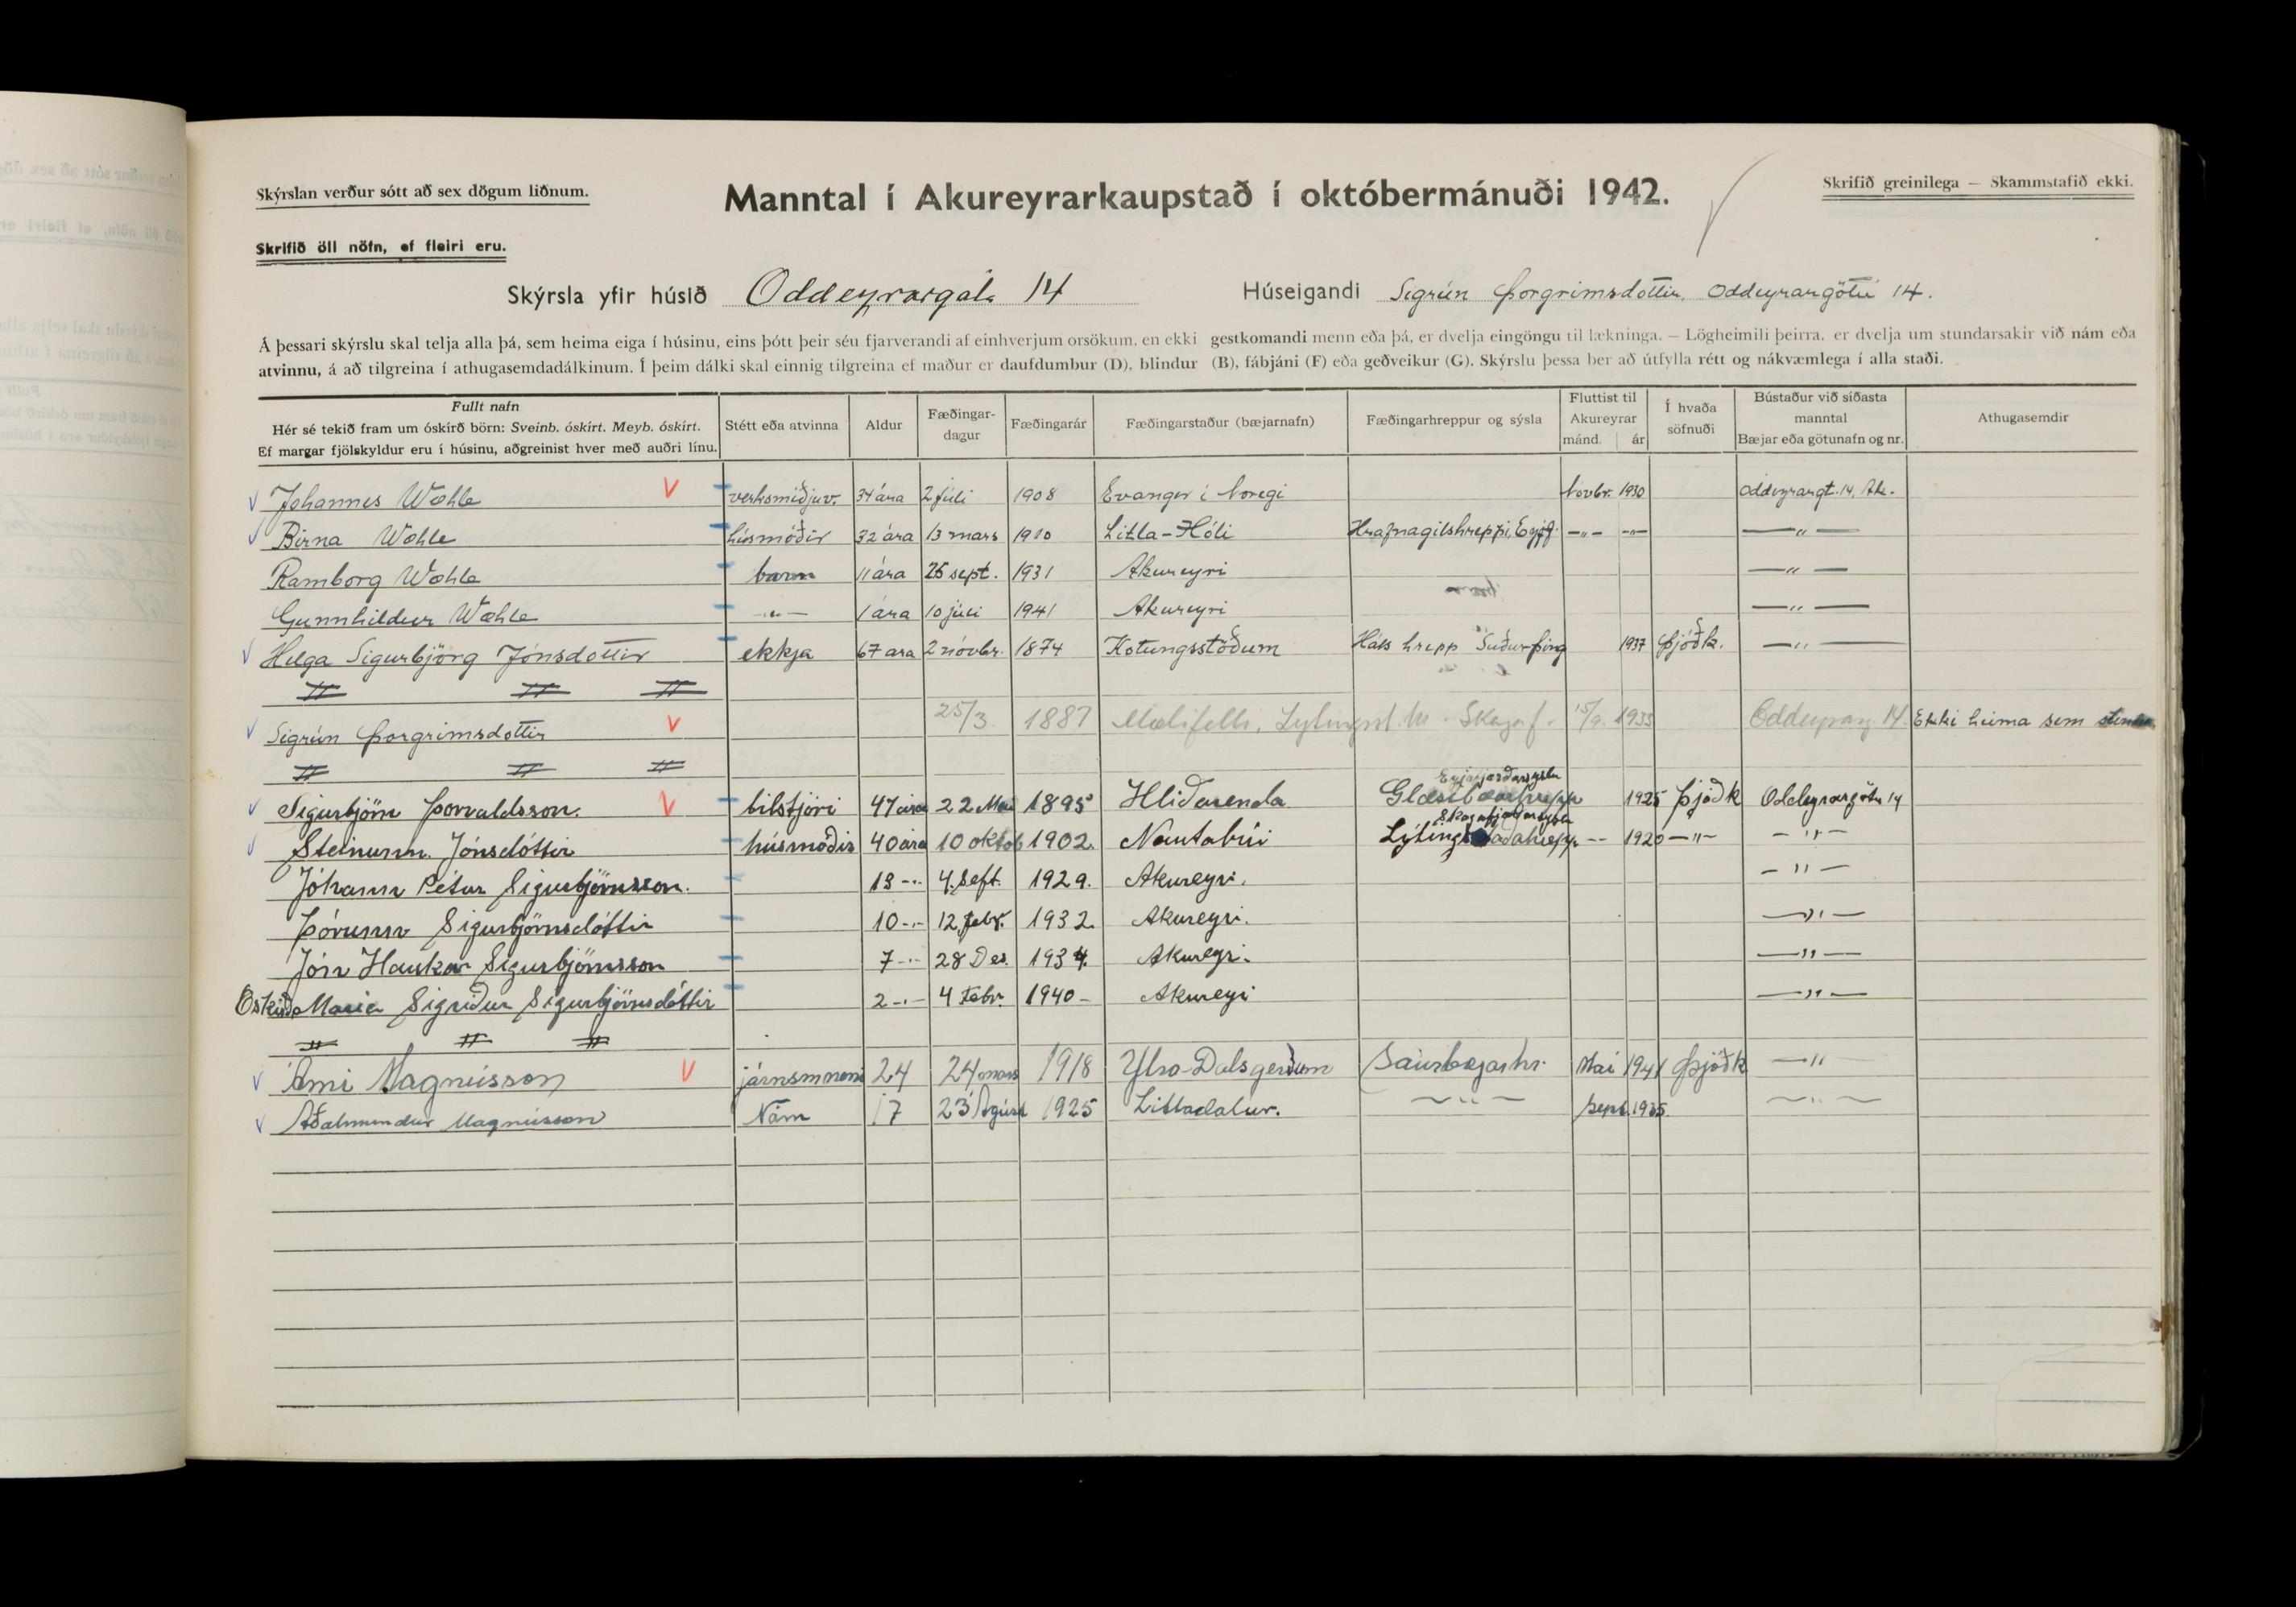 Skýrslan verður sótt að sex dögum liðnum.
Manntal í Akureyrarkaupstað í októbermánuði 1942.
Skrifið greinilega — Skammstafið ekki.
Skrifið öll nöfn, ef fleiri eru.
Skýrsla yfir húsið Oddeyrargata 14 Húseigandi Sigrún Þorgrímsdóttir, Oddeyrargötu 14.
Á þessari skýrslu skal telja alla þá, sem heima eiga í húsinu, eins þótt þeir séu fjarverandi af einhverjum orsökum, en ekki gestkomandi menn eða þá, er dvelja eingöngu til lækninga. — Lögheimili þeirra, er dvelja um stundarsakir við nám eða
atvinnu, á að tilgreina í athugasemdadálkinum. Í þeim dálki skal einnig tilgreina ef maður er daufdumbur (D), blindur (B), fábjáni (F) eða geðveikur (G). Skýrslu þessa ber að útfylla rétt og nákvæmlega í alla staði.
Fullt nafn
Hér sé tekið fram um óskírð börn: Sveinb. óskírt. Meyb. óskírt.
Ef margar fjölskyldur eru í húsinu, aðgreinist hver með auðri línu.
Stétt eða atvinna
Aldur
Fæðingar-
dagur
Fæðingarár
Fæðingarstaður (bæjarnafn)
Fæðingarhreppur og sýsla
Fluttist til
Akureyrar
mánd. ár
Í hvaða
söfnuði
Bústaður við síðasta
manntal
Bæjar eða götunafn og nr.
Athugasemdir
V Johannes Wæhle V verksmiðjuv. 34 ára 2 júli 1908 Evanger í Noregi Novbr. 1930 Oddeyrargt. 14, Ak.
V Birna Wæhle húsmóðir 32 ára 13 mars 1910 Litla-Hóli Hrafnagilshreppi, Eyjf. —"— —"— —"—
Ramborg Wæhle barn 11 ára 25 sept. 1931 Akureyri —"—
Gunnhildur Wæhle —"— 1 ára 10 júli 1941 Akureyri —"—
V Helga Sigurbjörg Jónsdóttir ekkja 67 ara 2 nóvbr. 1874 Kotungsstöðum Háls hrepp Suður Þing 1937 Þjóðk. —"—
V Sigrún Þorgrímsdóttir V 25/3. 1887 Mælifelli, Lytingsst.hr. Skagaf. 15/9. 1935 Oddeyrarg. 14. Ekki heima sem
Eyjafjarðarsýslu
V Sigurbjörn Þorvaldsson. V bilstjóri 47 ára 22 Mai 1895 Hliðarenda Glæsibæarhrepp 1925 Þjóðk Oddeyrargötu 14
Skagafjarðarsýslu
V Steinunn Jónsdóttir húsmóðir 40 ára 10 oktob 1902. Nautabúi Lýtingsstaðahrepp -- 1920 —"— —"—
Jóhann Pétur Sigurbjörnsson. 13 -"- 4. Sept. 1929. Akureyri. —"—
Þórunn Sigurbjörnsdóttir 10 -"- 12 febr. 1932. Akureyri. —"—
Jón Haukur Sigurbjörnsson 7 -"- 28 Des. 1934. Akureyri. —"—
Óskírð Maria Sigríður Sigurbjörnsdóttir 2 -"- 4 Febr. 1940 - Akureyri —"—
V Árni Magnússon V járnsmnemi 24 24 mars 1918 Ytra-Dalsgerðum Saurbæjarhr. Mai 1941 Þjóðk —"—
V Aðalmundur Magnússon Nám 17 23 Águst 1925 Litladalur. —"— Sept. 1935. —"—